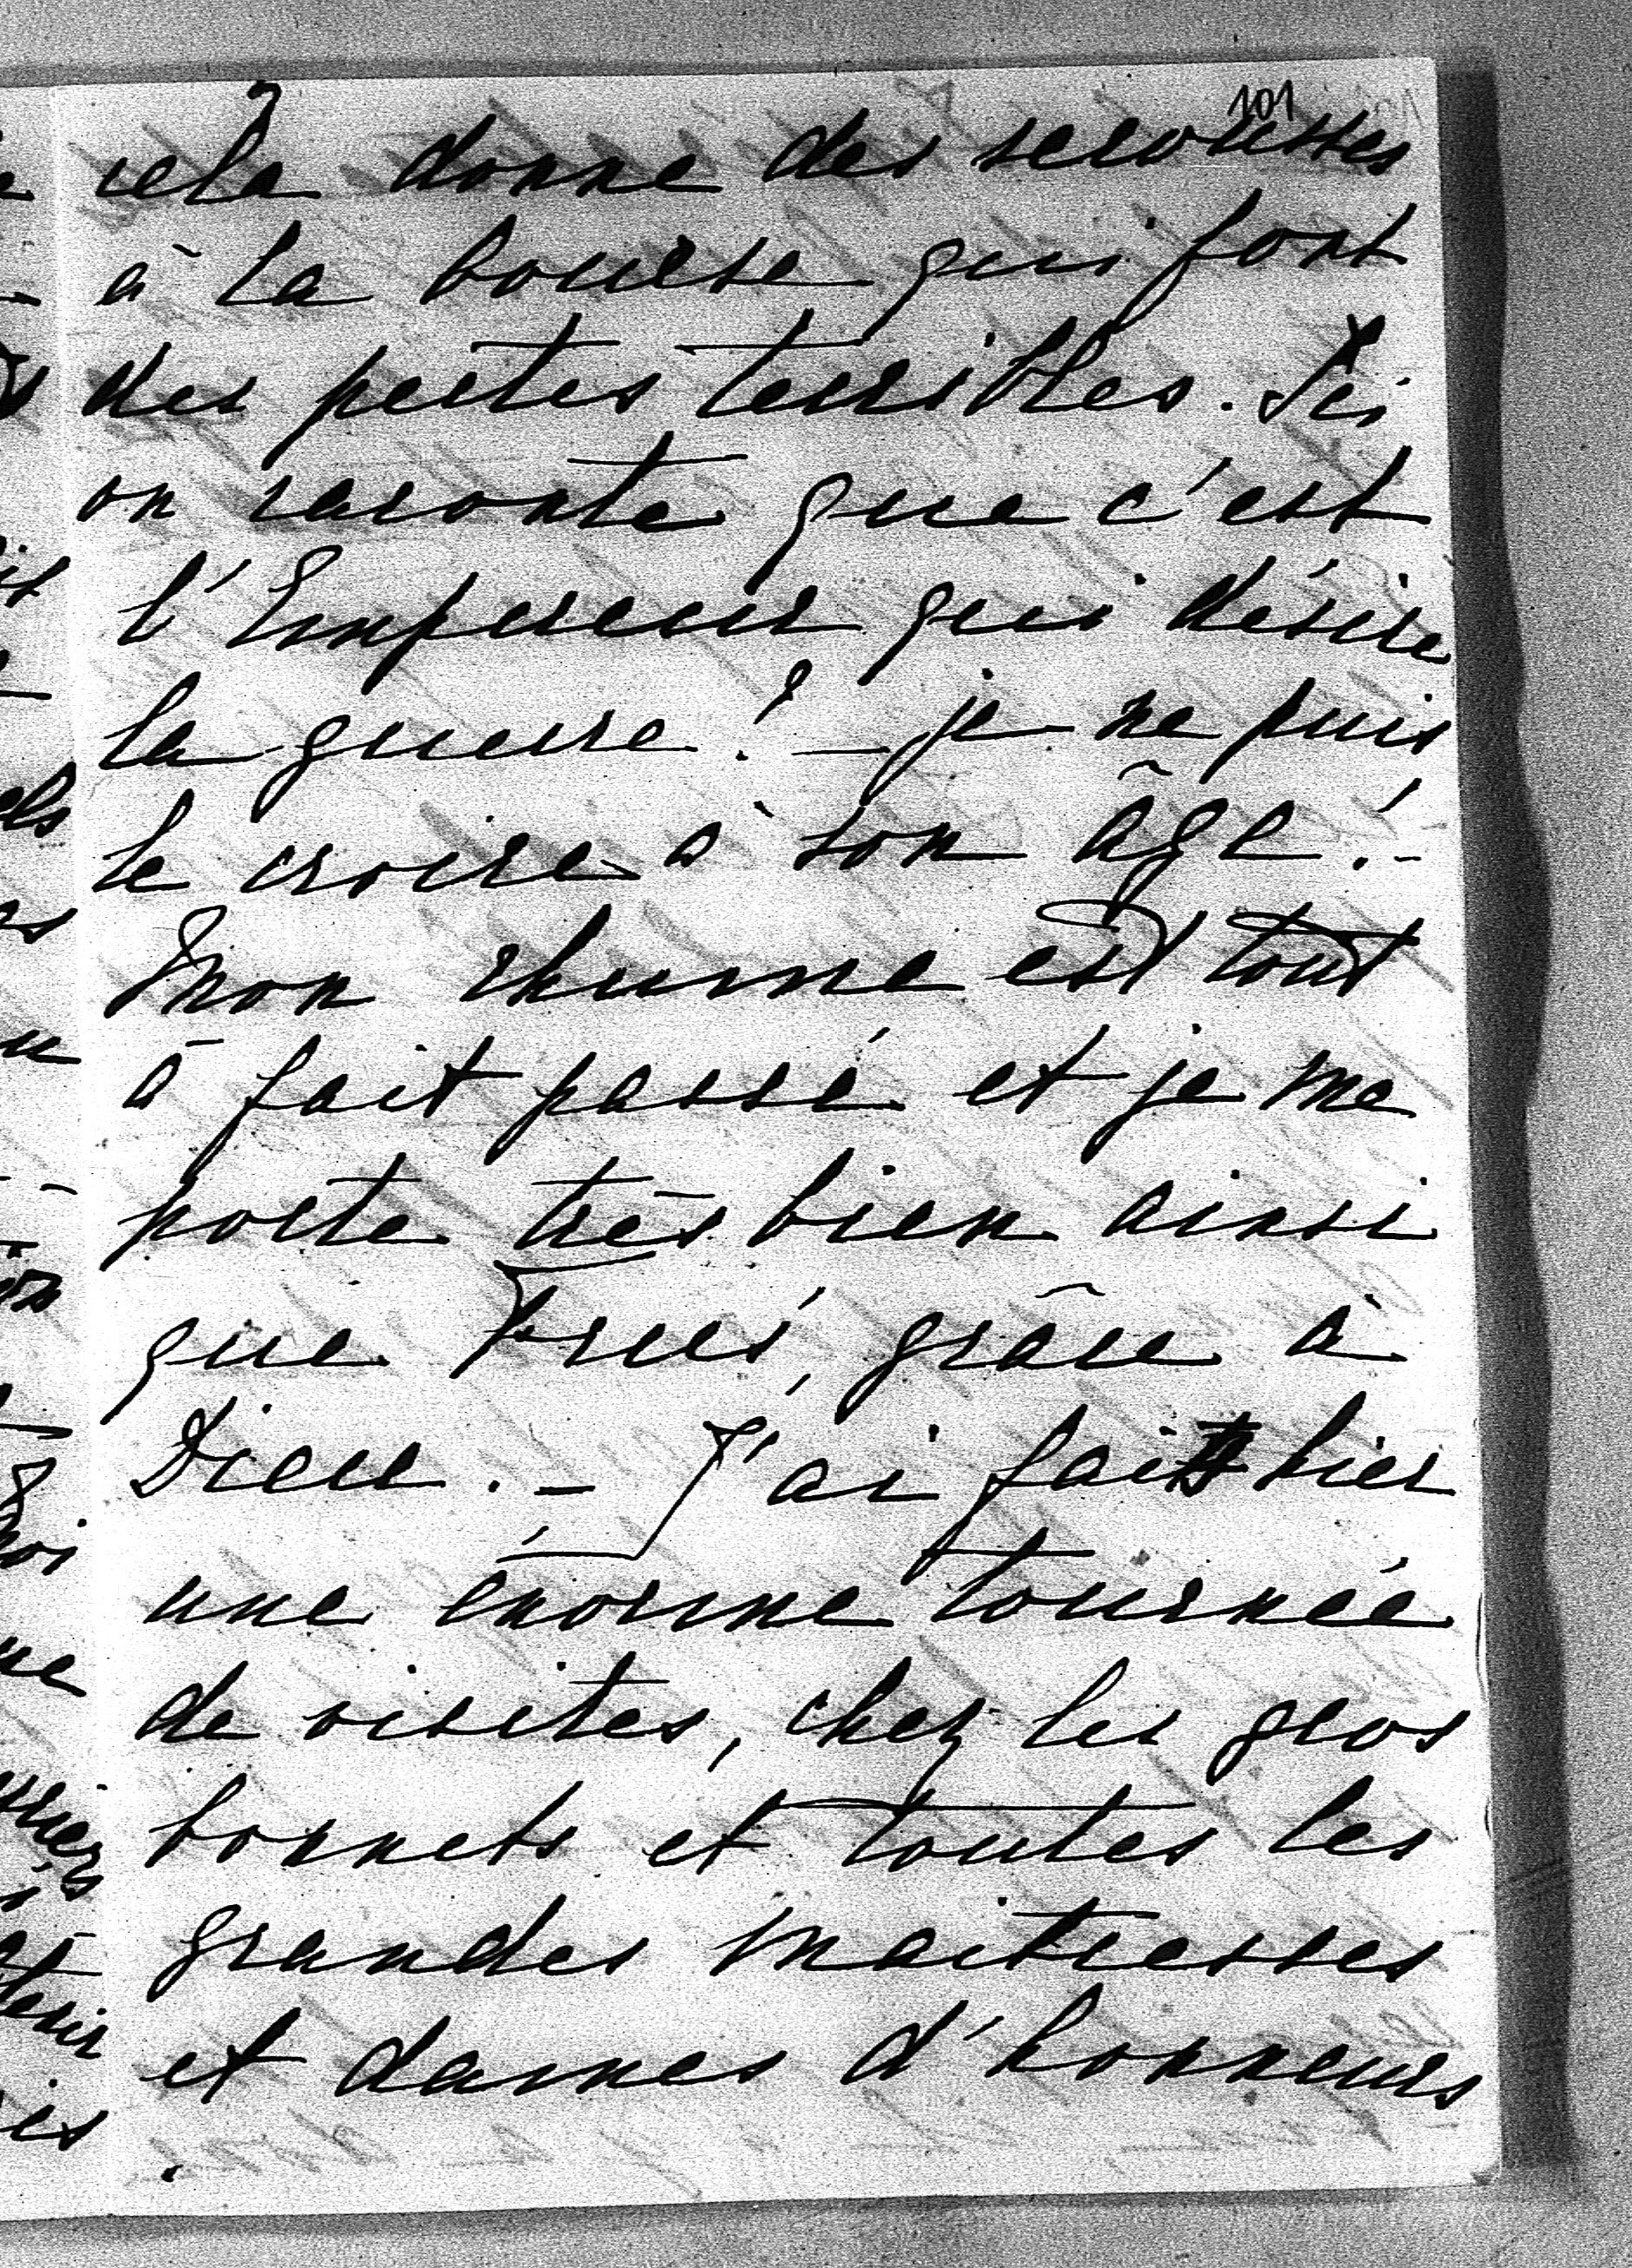 101
cela donne des secousses
à la bourse qui font
des pertes terribles. Ici
on raconte que c'est
l'Empereur qui désire
la guerre! — je ne puis
le croire à son âge!–
Mon rhume est tout
à fait passé et je me
porte très bien ainsi
que, grâce à
Dieu. – J'ai fait hier
une énorme tournée
de visites, chez les gros
bonnets et toutes les
grandes maitresses
et dames d'honneurs